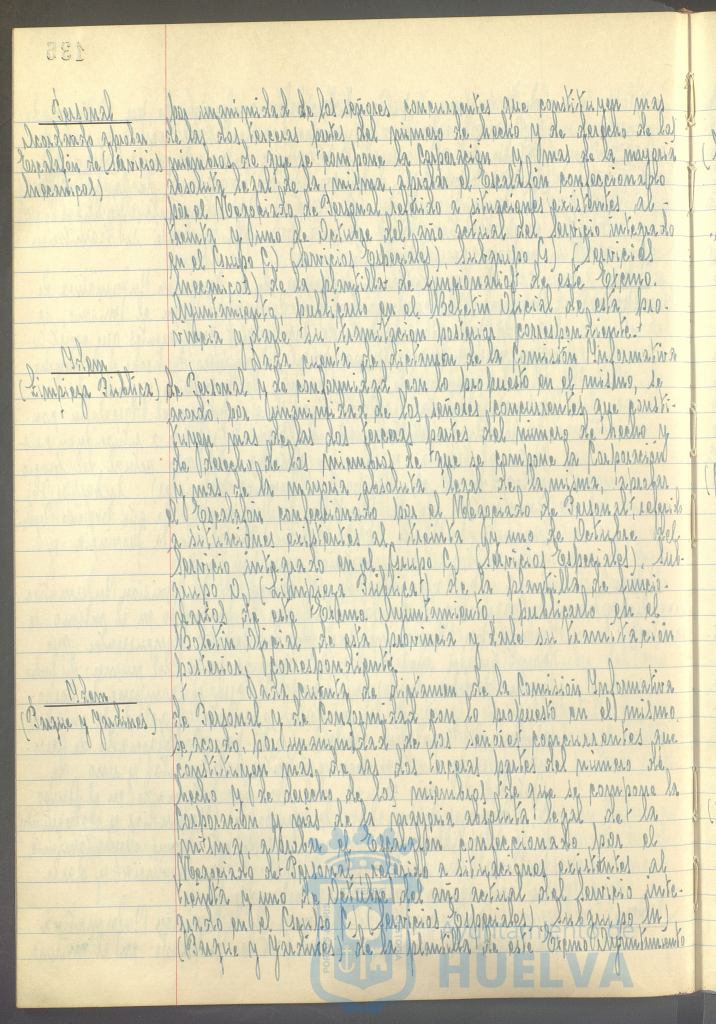 135
Personal
Acordando aprobar
Escalafón de (Servicios
Mecánicos)
por unanimidad de los señores concurrentes que constituyen mas
de las dos terceras partes del número de hecho y de derecho de los
miembros de que se compone la Corporación y mas de la mayoria
absoluta legal de la misma, aprobar el Escalafón confeccionado
por el Negociado de Personal, referido a situaciones existentes al
treinta y uno de Octubre del año actual del Servicio integrado
en el Grupo C) (Servicios Especiales) Subgrupo (Servicios
Mecánicos) de la plantilla de funcionarios de este Excmo.
Ayuntamiento, publicarlo en el Boletin Oficial de esta pro-
vincia y darle su tramitación posterior correspondiente.
Idem
(Limpieza Pública)
Dada cuenta de dictamen de la Comisión Informativa
de Personal y de conformidad con lo propuesto en el mismo, se
acordó por unanimidad de los señores concurrentes que consti-
tuyen mas de las dos terceras partes del número de hecho y
de derecho de los miembros de que se compone la Corporación
y mas de la mayoria absoluta legal de la misma, aprobar
el Escalafón confeccionado por el Negociado de Personal, referido
a situaciones existentes al treinta y uno de Octubre del
Servicio integrado en el Grupo C) (Servicios Especiales), sub-
grupo (Limpieza Pública) de la plantilla de funcio-
narios de este Excmo. Ayuntamiento, publicarlo en el
Boletin Oficial de esta provincia y darle su tramitación
posterior correspondiente.
Idem
(Parque y Jardines)
Dada cuenta de dictamen de la Comisión Informativa
de Personal y de Conformidad con lo propuesto en el mismo
se acordó, por unanimidad de los señores concurrentes que
constituyen mas de las dos terceras partes del número de
hecho y de derecho de los miembros de que se compone la
Corporación y mas de la mayoria absoluta legal de la
misma, aprobar el Escalafón confeccionado por el
Negociado de Personal, referido a situaciones existentes al
treinta y uno de Octubre del año actual del Servicio inte-
grado en el Grupo (Servicios Especiales) subgrupo
(Parque y Jardines) de la plantilla de este Excmo Ayuntamiento
Ayuntamiento de
HUELVA